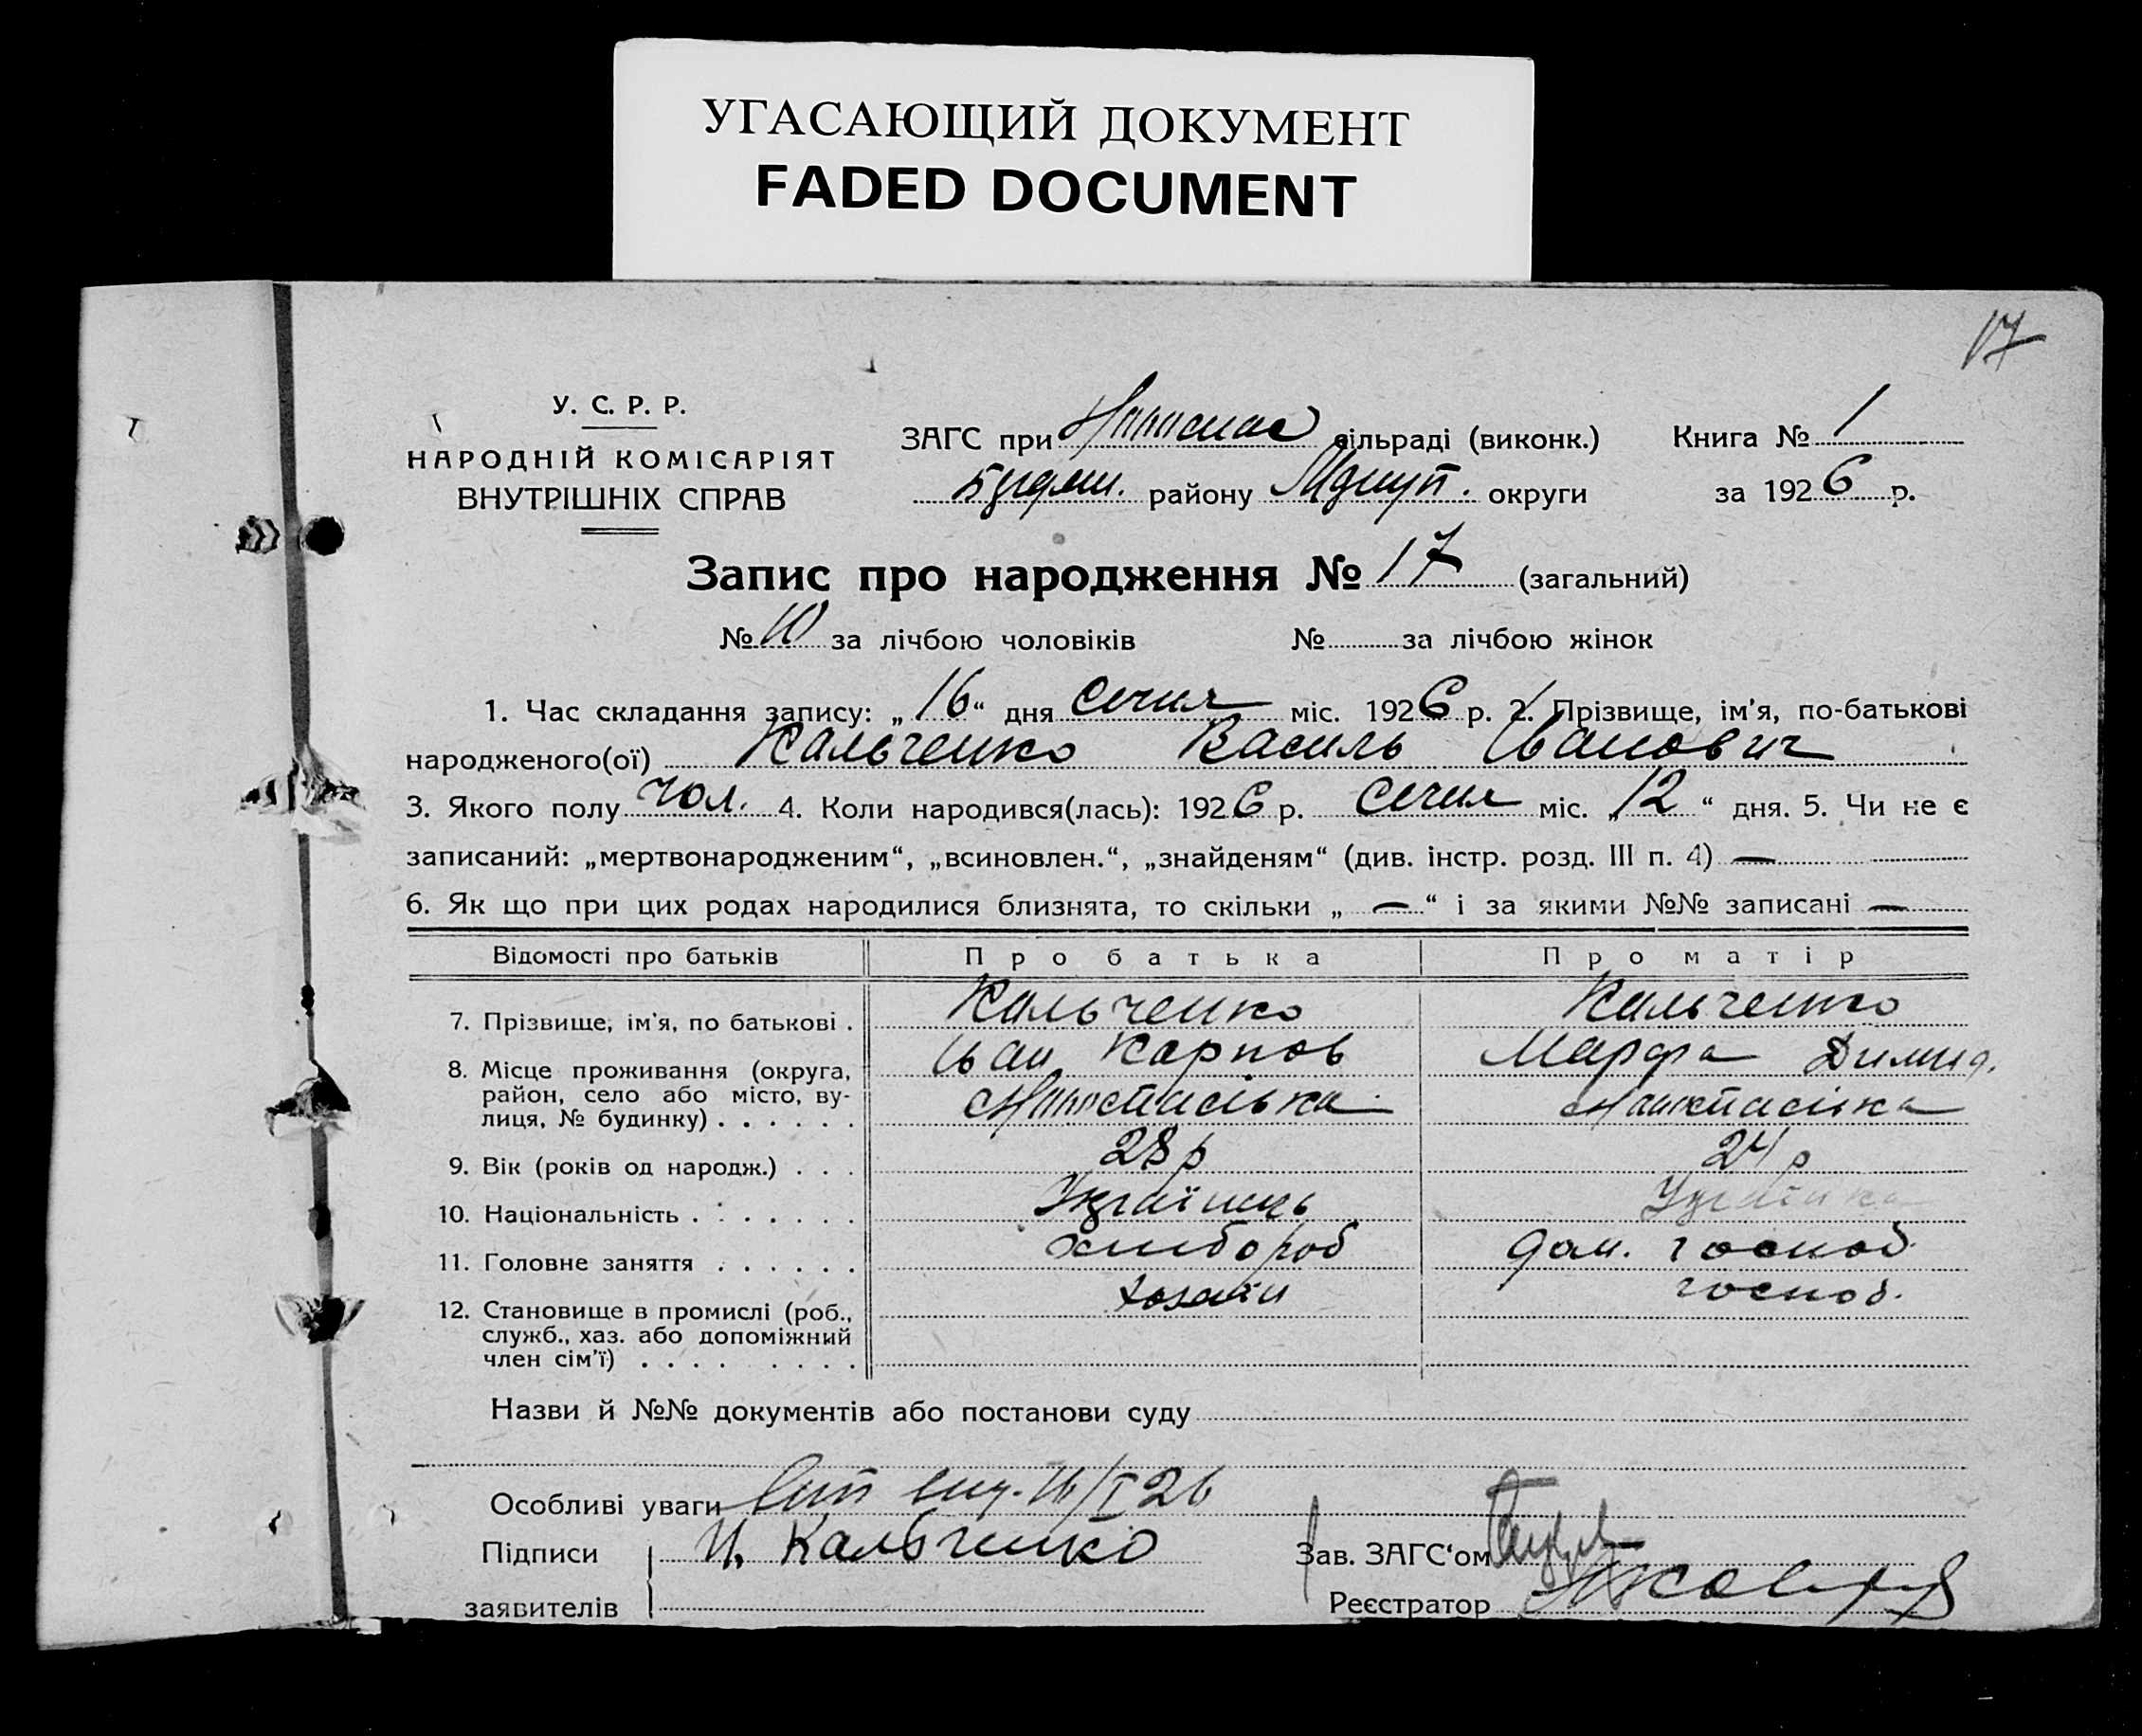 УГАСАЮЩИЙ ДОКУМЕНТ
FADED DOCUMENT
17
У. С. Р. Р.
НАРОДНІЙ КОМІСАРІЯТ
ВНУТРІШНІХ СПРАВ
ЗАГС при сільраді (виконк.)
району округи
Книга № 1
за 1926 р.
Запис про народження № 17 (загальний)
№ 10 за лічбою чоловіків № за лічбою жінок
1. Час складання запису: „16“ дня Січня міс. 1926 р. 2. Прізвище, ім'я, по-батькові
народженого(ої) Кальченко Василь Іванович
3. Якого полу чол. 4. Коли народився(лась): 1926 р. Січня міс. „12“ дня. 5. Чи не є
записаний: „мертвонародженим“, „всиновлен.“, „знайденям“ (див. інстр. розд. III п. 4) —
6. Як що при цих родах народилися близнята, то скільки „—“ і за якими №№ записані —
Відомості про батьків Про батька Про матір
7. Прізвище, ім'я, по батькові . Кальченко Кальченко
Іван Карпов Марфа Димид.
8. Місце проживання (округа,
район, село або місто, ву-
лиця, № будинку) . . . . . .
9. Вік (років од народж.) . . . 28 р 24 р
10. Національність . . . . . . . Українець Українка
11. Головне заняття . . . . . . хлібороб дом. господ.
12. Становище в промислі (роб., хозаїн господ.
служб., хаз. або допоміжний
член сім'ї) . . . . . . . .
Назви й №№ документів або постанови суду
Особливі уваги
Підписи И. Кальченко
заявителів
Зав. ЗАГС'ом
Реєстратор